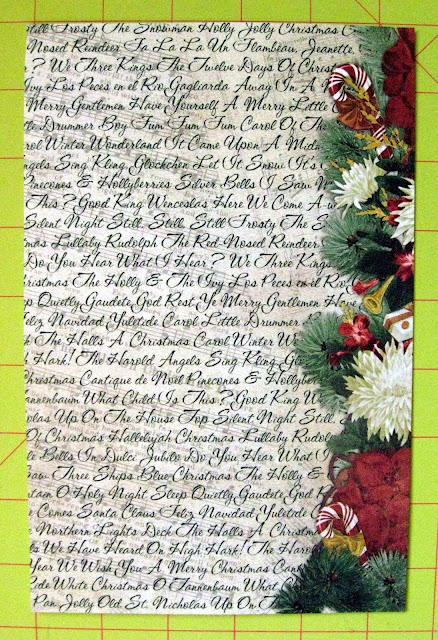 Still Frosty The Snowman Holly Jolly Christmas
Nosed Reindeer Fa La La Un Flambeau, Jeanette,
? We Three Kings The Twelve Days Of Christ
Ivy Los Peces en el Rio Gagliarda Away In A
Merry Gentlemen Have Yourself A Merry Little
Drummer Boy Fum Fum Fum Carol Of The
Carol Winter Wonderland It Came Upon A Midn
Angels Sing Kling, Glöckchen Let It Snow It's
Pinecones & Hollyberries Silver Bells I Saw
This? Good King Wenceslas Here We Come A-w
Silent Night Still, Still, Still Frosty The S
mas Lullaby Rudolph The Red-Nosed Reindeer
Do You Hear What I Hear? We Three Kings
Christmas The Holly & The Ivy Los Peces en el Rio
ep Quietly Gaudete God Rest Ye Merry Gentlemen Have
Feliz Navidad Yuletide Carol Little Drummer
ck The Halls A Christmas Carol Winter W
Hark! The Harold Angels Sing Kling, Glö
Christmas Cantique de Noel Pinecones & Hollyber
Tannenbaum What Child Is This? Good King We
olas Up On The House Top Silent Night Still, S
Of Christmas Hallelujah Christmas Lullaby Rudolp
le Bells In Dulci Jubilo Do You Hear What I
Saw Three Ships Blue Christmas The Holly &
tam O Holy Night Sleep Quietly Gaudete God R
e Comes Santa Claus Feliz Navidad Yuletide C
Northern Lights Deck The Halls A Christma
ls We Have Heard On High Hark! The Haro
Year We Wish You A Merry Christmas Can
de White Christmas O Tannenbaum What
Pan Jolly Old St. Nicholas Up On T